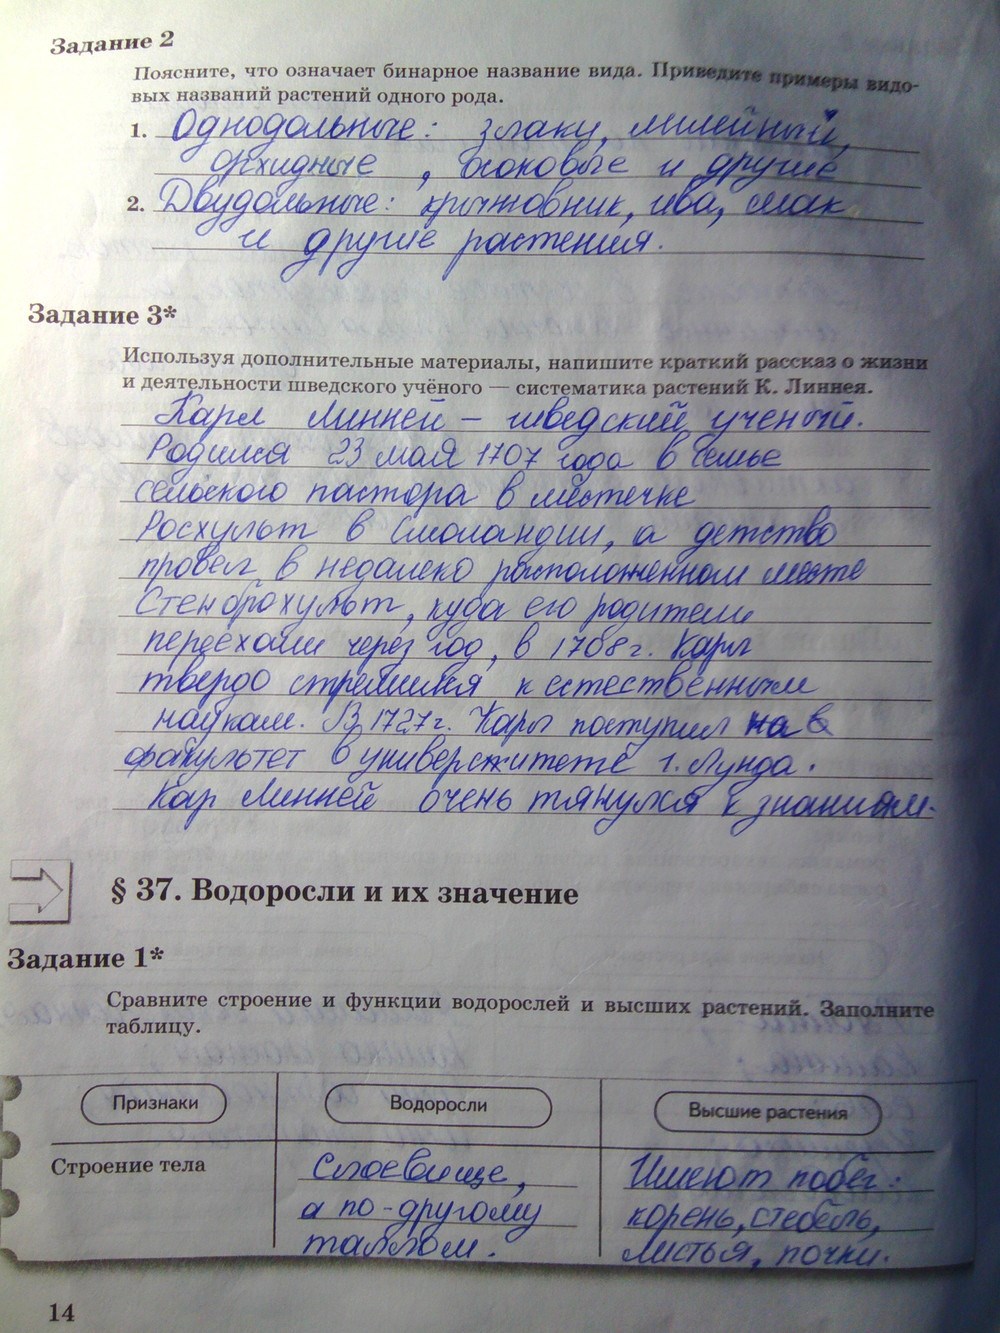 Задание 2
Поясните, что означает бинарное название вида. Приведите примеры видо-
вых названий растений одного рода.
1. Однодольные: злаки, лилейный,
орхидные, осоковые и другие
2. Двудольные: крыжовник, ива, мак
и другие растения.
Задание 3*
Используя дополнительные материалы, напишите краткий рассказ о жизни
и деятельности шведского учёного — систематика растений К. Линнея.
Карл Линней – шведский ученый.
Родился 23 мая 1707 года в семье
сельского пастора в местечке
Росхульт в Смоландии, а детство
провел в недалеко расположенном месте
Стенброхульт, куда его родители
переехали через год, в 1708 г. Карл
твердо стремился к естественным
наукам. В 1727 г. Карл поступил на в
факультет в университете г. Лунда.
Кар Линней очень тянулся к знаниям.
§ 37. Водоросли и их значение
Задание 1*
Сравните строение и функции водорослей и высших растений. Заполните
таблицу.
Признаки Водоросли Высшие растения
Строение тела Слоевище, Имеют побег:
а по-другому корень, стебель,
таллом. листья, почки.
14